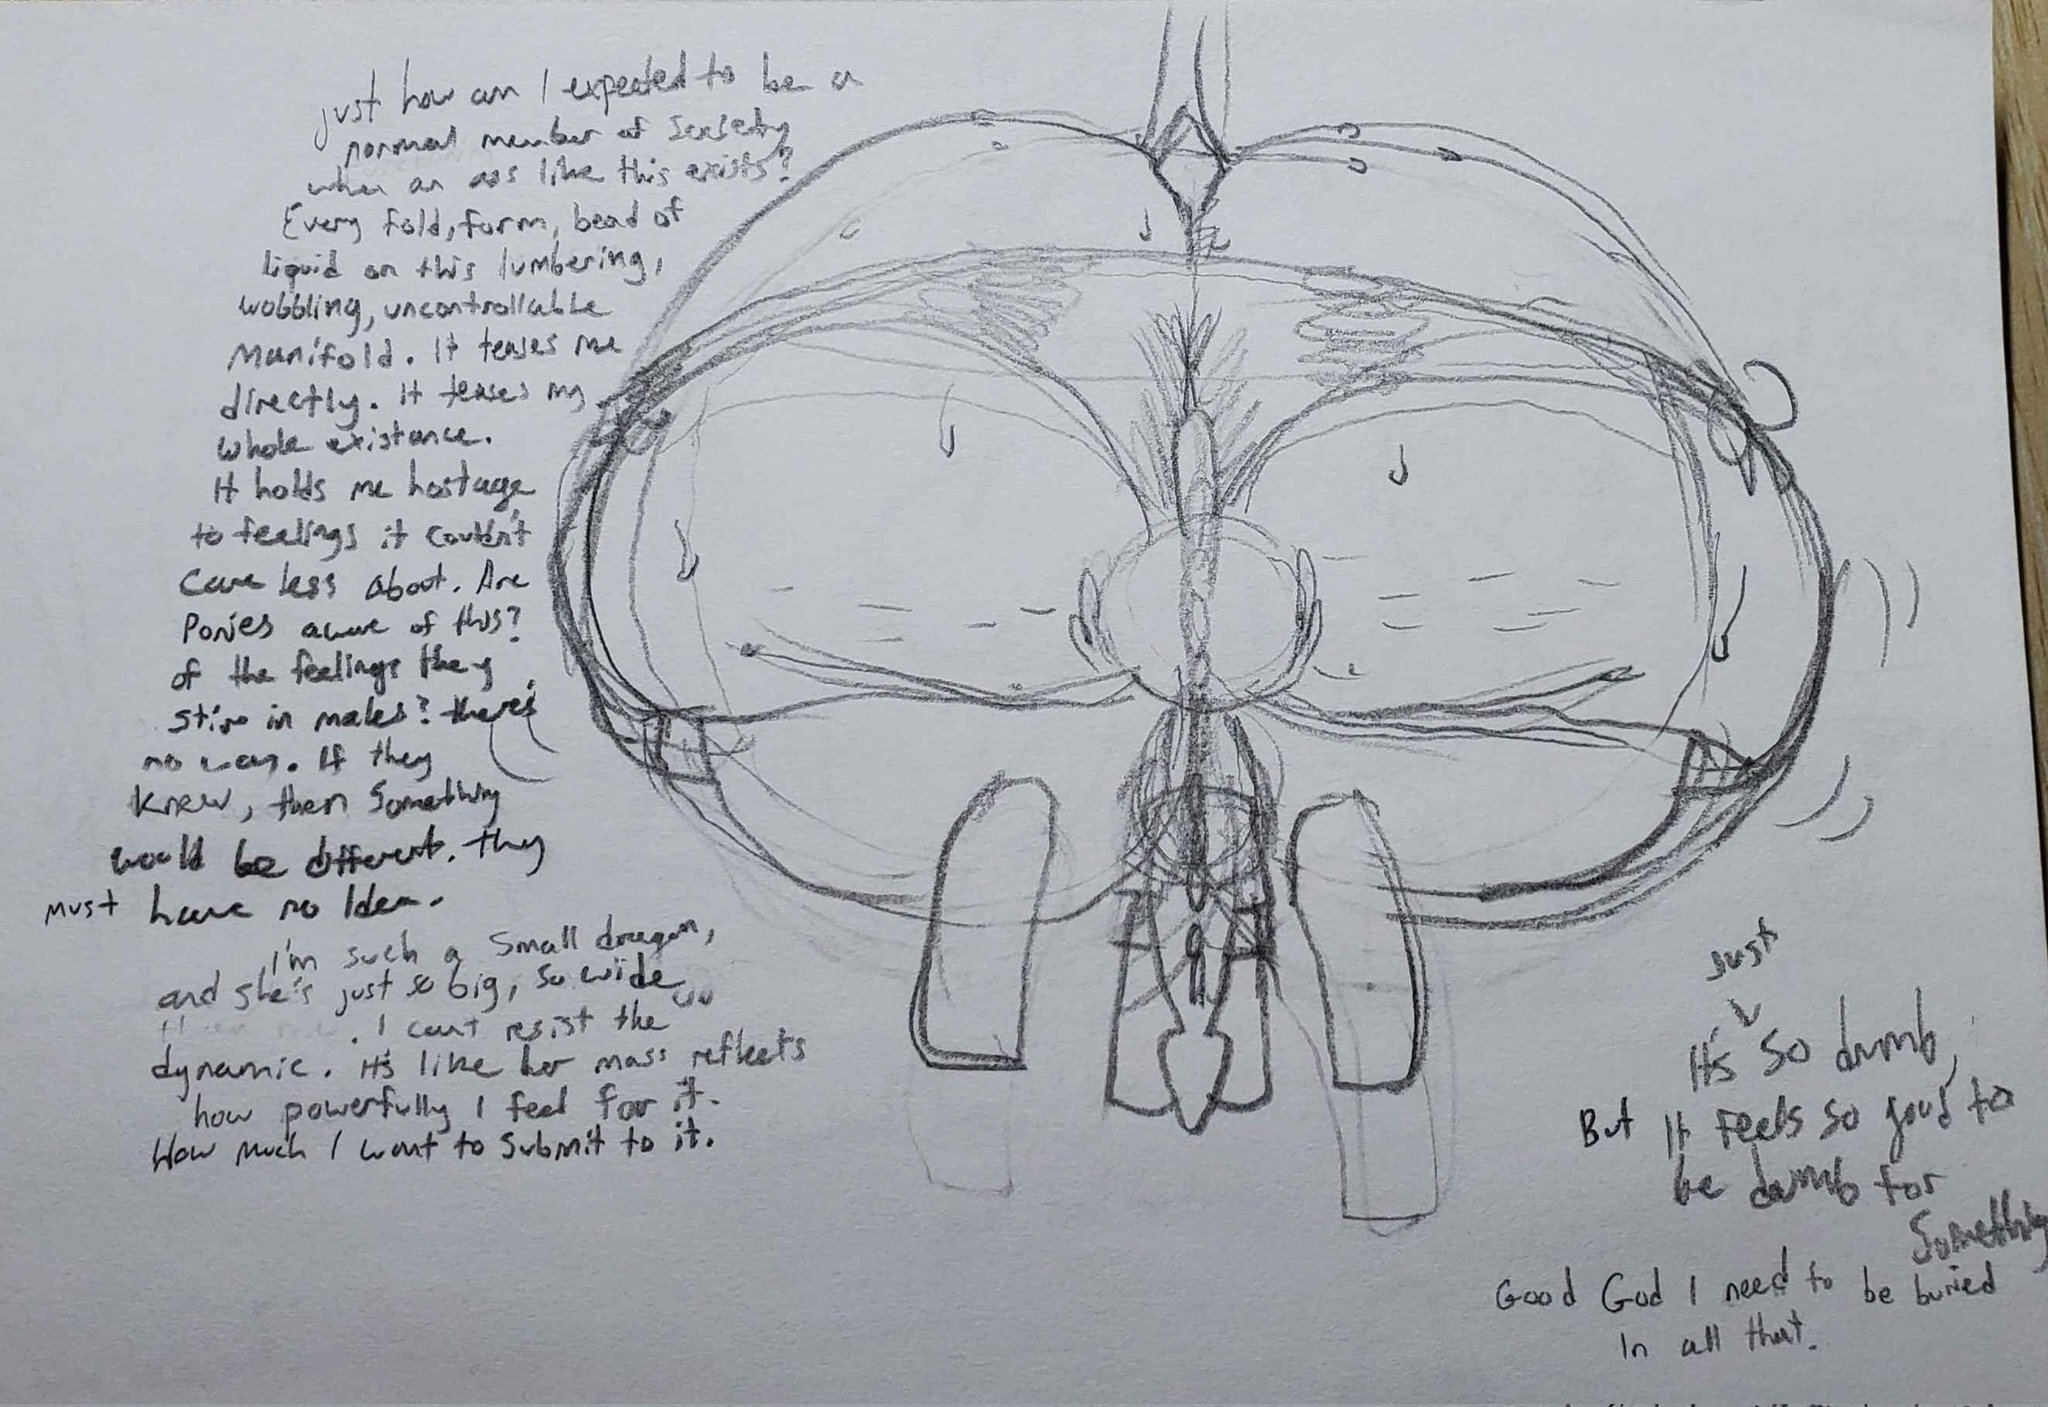 just how am I expected to be a
normal member of society
when an ass like this exists?
Every fold, form, bead of
liquid on this lumbering,
wobbling, uncontrollable
Manifold. It teases me
directly. It teases my
whole existance.
It holds me hostage
to feelings it couldn't
care less about. Are
Ponies aware of this?
of the feelings they
stir in males? there's
no way. If they
knew, then something
would be different. they
must have no Idea.
I'm such a small dragon,
and she's just so big, so wide
I can't resist the
dynamic. it's like her mass reflects
how powerfully I feel for it.
How much I want to submit to it.
Just
It's so dumb,
But it feels so good to
be dumb for
Something
Good God I need to be buried
in all that.